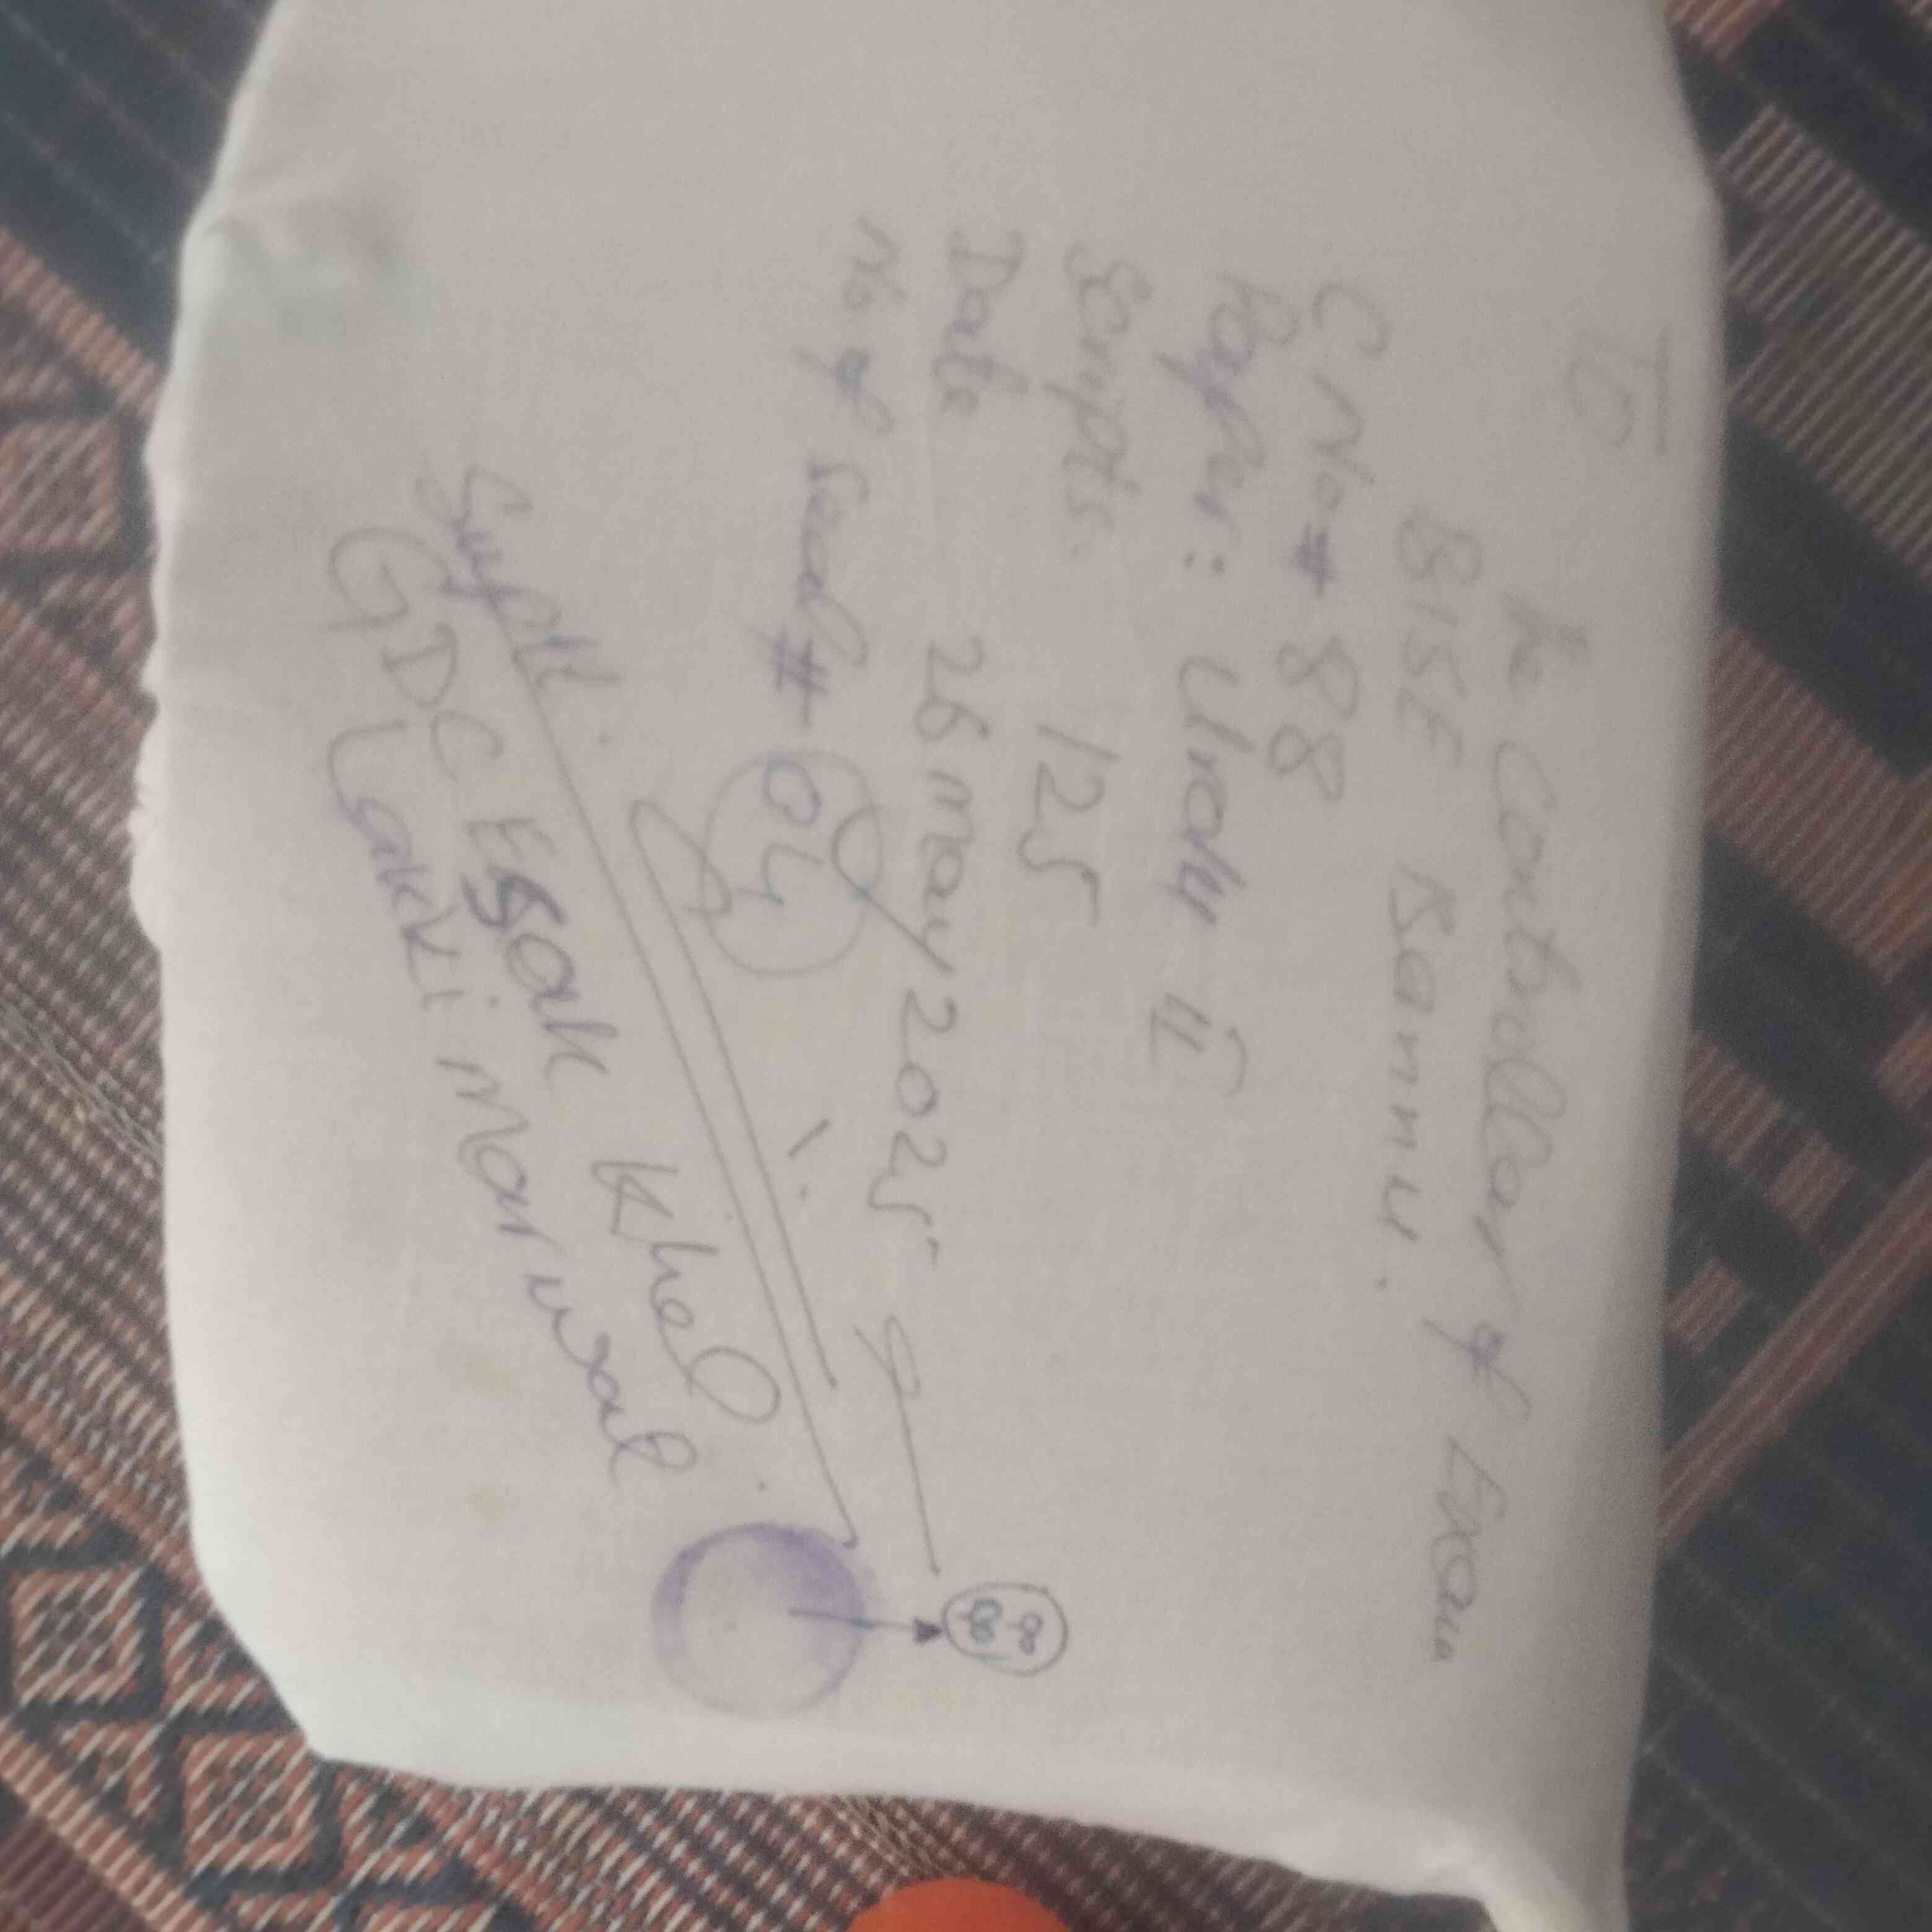 To
The Controller of Exam
BISE Bannu.
C No # 88
Paper: Urdu II
Scripts. 125
Date 26 May 2025
No of Seal # 04
Suptt.
GDC Esak Khel
Lakki Marwat